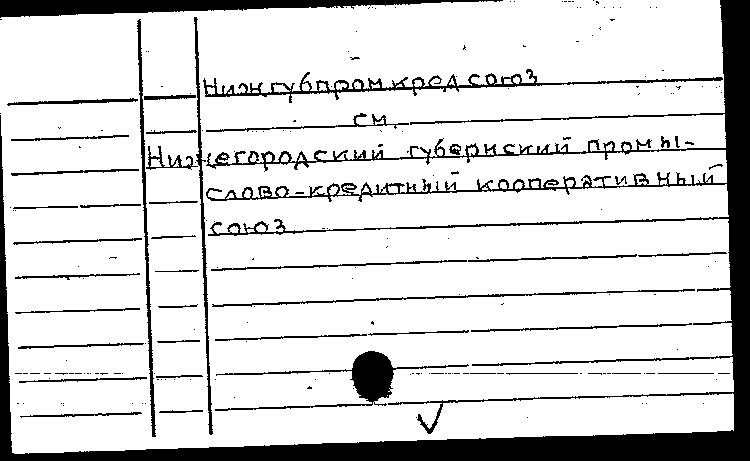 Нижгубпромкредсоюз
см.
Нижегородский губернский промы-
слово-кредитный кооперативный
союз